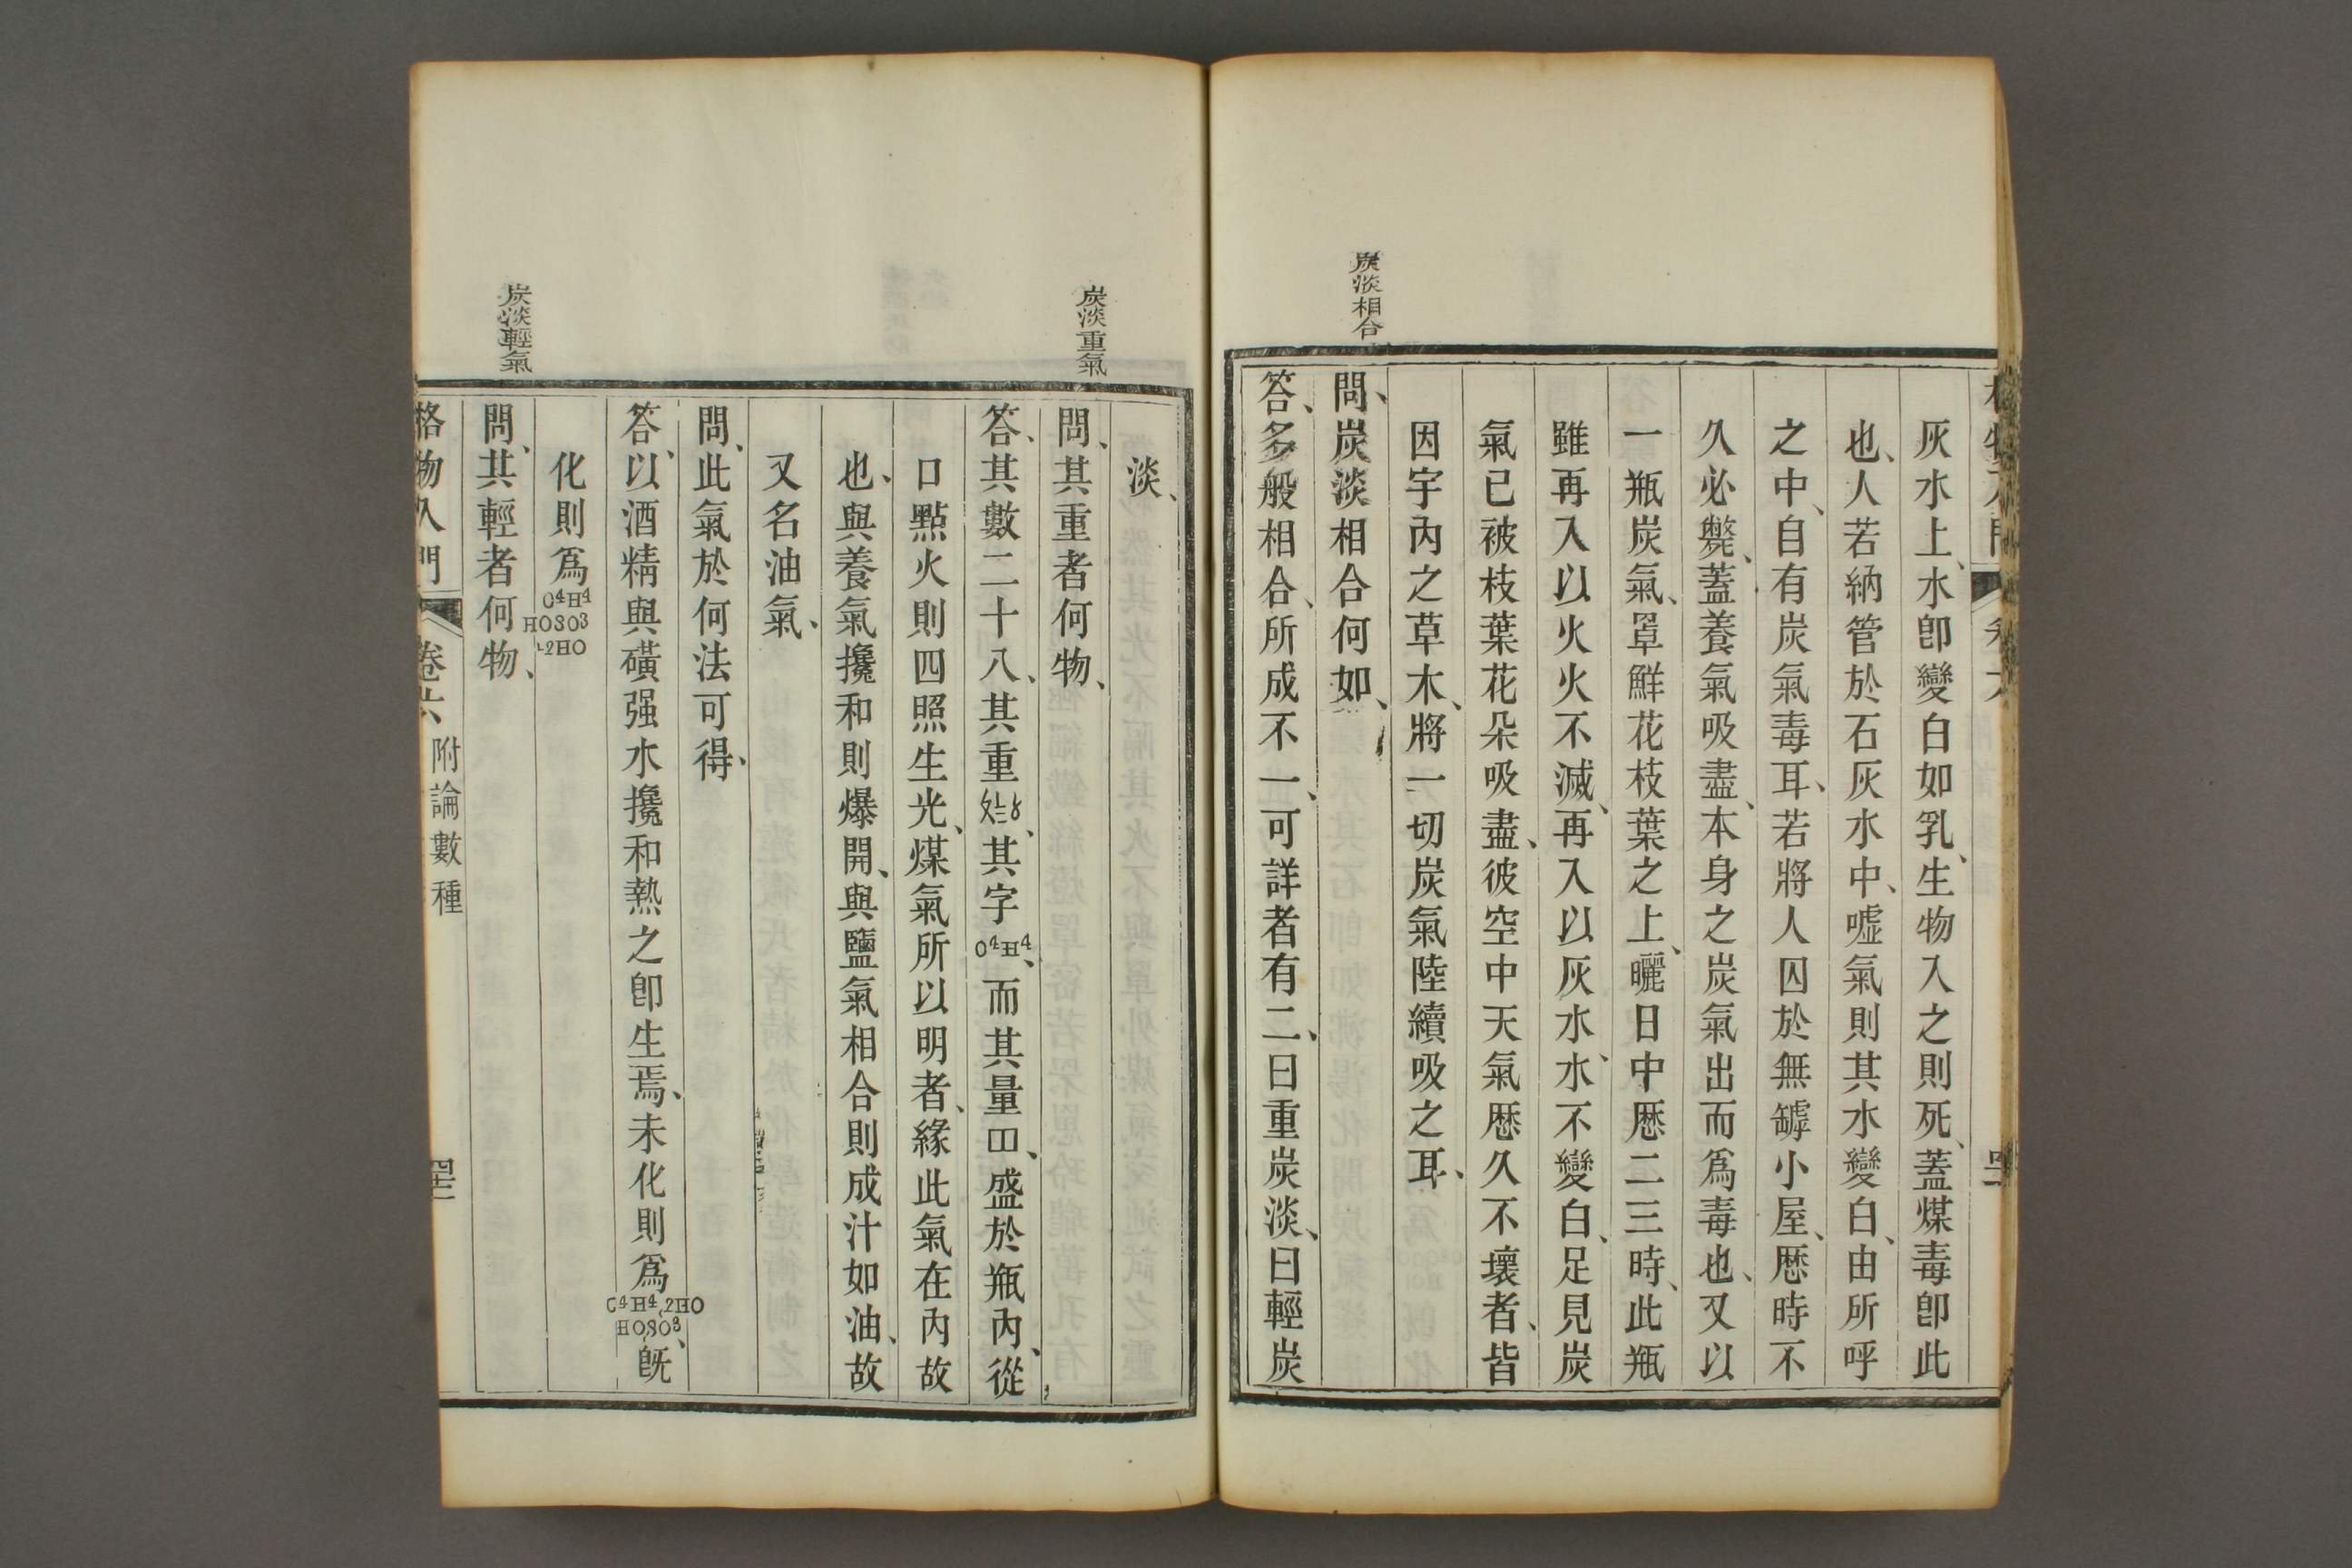 灰水上、水卽變白如乳、生物入之則死、蓋煤毒卽此
也、人若納管於石灰水中、噓氣則其水變白、由所呼
之中、自有炭氣毒耳、若將人囚於無罅小屋、厯時不
久必斃、蓋養氣吸盡、本身之炭氣出而爲毒也、又以
一瓶炭氣、罩鮮花枝葉之上、曬日中厯二三時、此瓶
雖再入以火火不滅、再入以灰水、水不變白、足見炭
氣已被枝葉花朵吸盡、彼空中天氣厯久不壞者、皆
因宇內之草木、將一切炭氣陸續吸之耳、
炭淡相合
問、炭淡相合何如、
答、多般相合、所成不一、可詳者有二、曰重炭淡、曰輕炭
淡、
炭淡重氣
問、其重者何物、
答、其數二十八、其重、其字C4H4、而其量口口、盛於瓶內、從
口點火則四照生光、煤氣所以明者、緣此氣在內故
也、與養氣攙和則爆開、與鹽氣相合則成汁如油、故
又名油氣、
問、此氣於何法可得、
答、以酒精與磺强水攙和熱之卽生焉、未化則爲C4H4,2HO HOSO3、旣
化則爲C4H4 HOSO3 2HO
炭淡輕氣
問、其輕者何物、
格物入門 卷六 附論數種